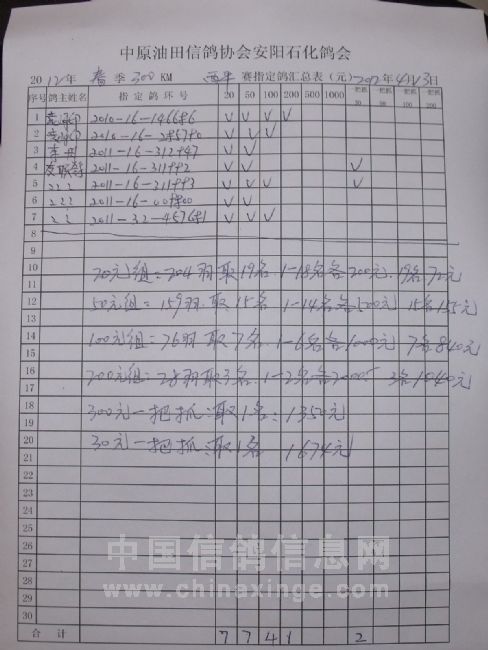 中原油田信鸽协会安阳石化鸽会
2012年 春 季 300 KM 西平 赛指定鸽汇总表 (元) 2012年4月13日
序号 鸽主姓名 指定鸽环号 20 50 100 200 500 1000 一把抓30 一把抓50 一把抓100 一把抓200
1 2010-16-146686 V V V V
2 2010-16- V V V
3 李 2011-16-312747 V V
4 2011-16-311992 V V V
5 ححح 2011-16-211993 V V V V
6 2011-16- V V
7 2011-32-457681 V V V
8
9
10
11
12
13
14
15
16
17
18
19
20
21
22
23
24
25
26
27
28
29
30
20元组=204羽取19名 1-18名各200元 19名72元
50元组=159羽取15名 1-14名各500元 15名155元
100元组=76羽取7名 1-6名各1000元 7名840元
200元组=28羽取3名 1-2名各2000 3名1040元
300元一把抓:取1名:1350元
30元一把抓:取1名 1674元
合计 7 7 4 1 2
中国信鸽信息网
www.chinaxinge.com